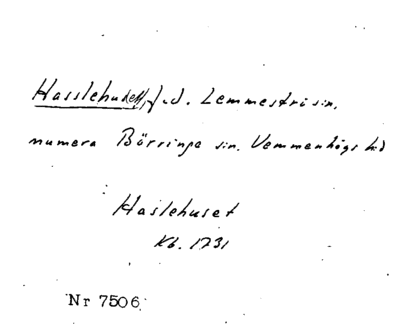 Hasslehuset, f.d. Lemmeströ sn.
numera Börringe sn. Vemmenhögs hd
Haslehuset
Kb. 1731
Nr 7506